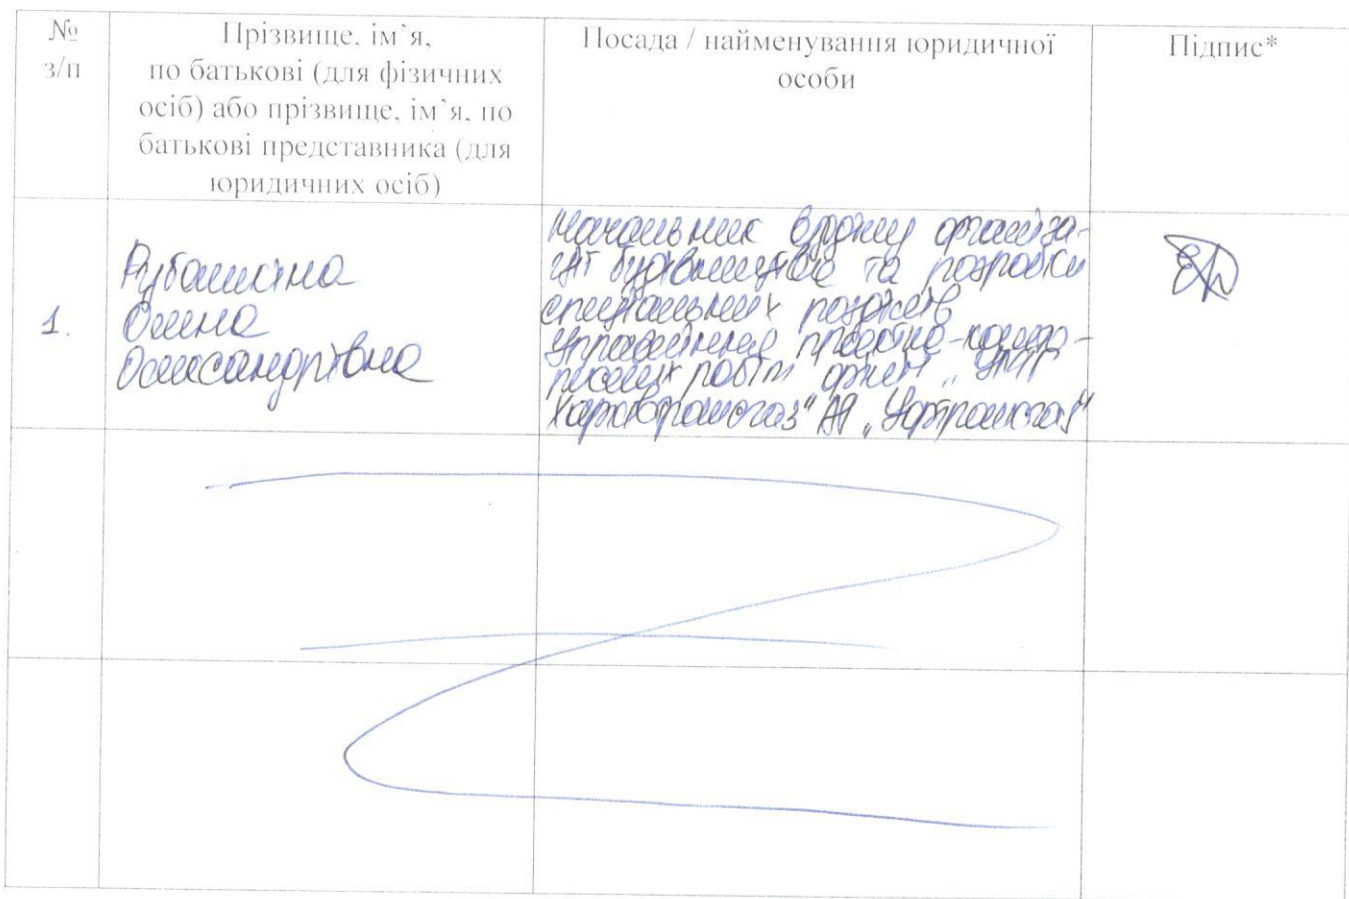 №
з/п
Прізвище, ім`я,
по батькові (для фізичних
осіб) або прізвище, ім`я, по
батькові представника (для
юридичних осіб)
Посада / найменування юридичної
особи
Підпис*
1.
Олександрівна
Начальник відділу організа-
ції будівництва та розробки
спеціальних
управління проектно-
робіт філії „
"АТ „Укртрансгаз"